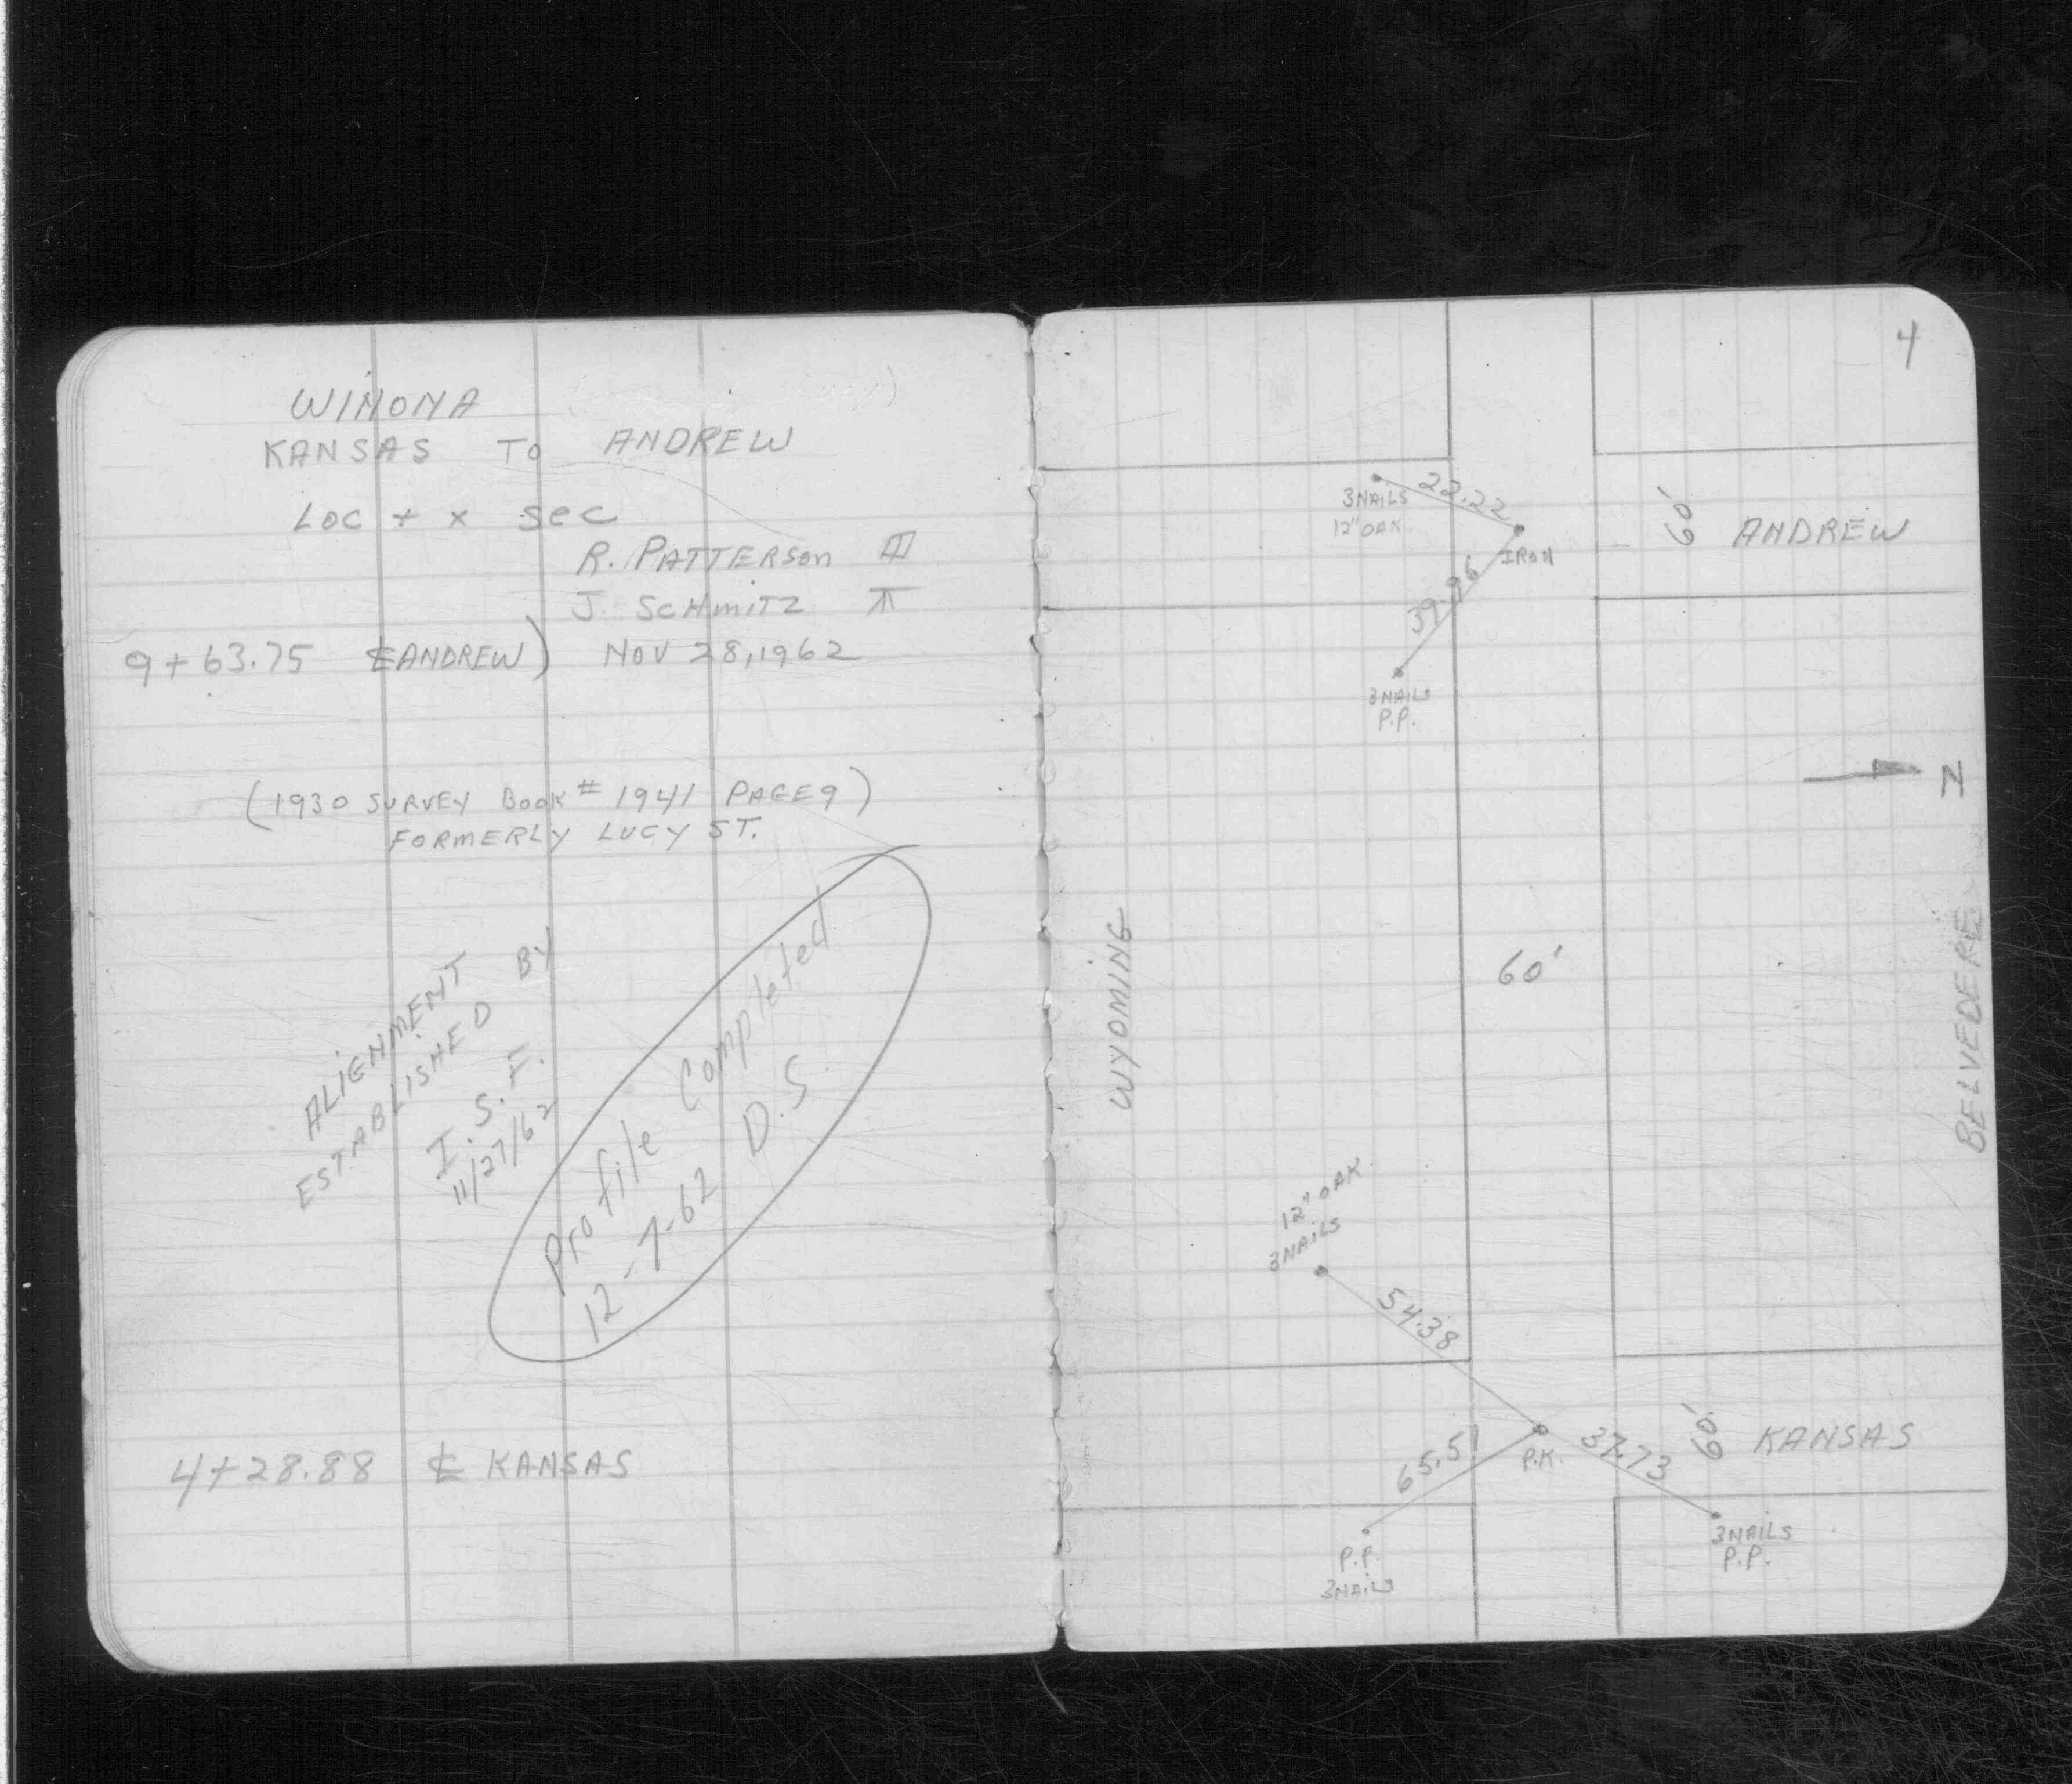 WINONA
KANSAS TO ANDREW
LOC + X SEC
R. PATTERSON
J. SCHMITZ
9+63.75 ℄ ANDREW) NOV 28, 1962
(1930 SURVEY BOOK # 1941 PAGE 9)
FORMERLY LUCY ST.
ALIGNMENT
ESTABLISHED BY
I.S.F.
11/27/62
Profile Completed
12-7-62 D.S.
4+28.88 ℄ KANSAS
4
22.22
3 NAILS
12" OAK.
IRON
60' ANDREW
39.96
3 NAILS
P.P.
N
WYOMING
60'
BELVEDERE
12" OAK.
3 NAILS
54.38
65.51
P.K.
37.73
60' KANSAS
P.P.
3 NAILS
3 NAILS
P.P.